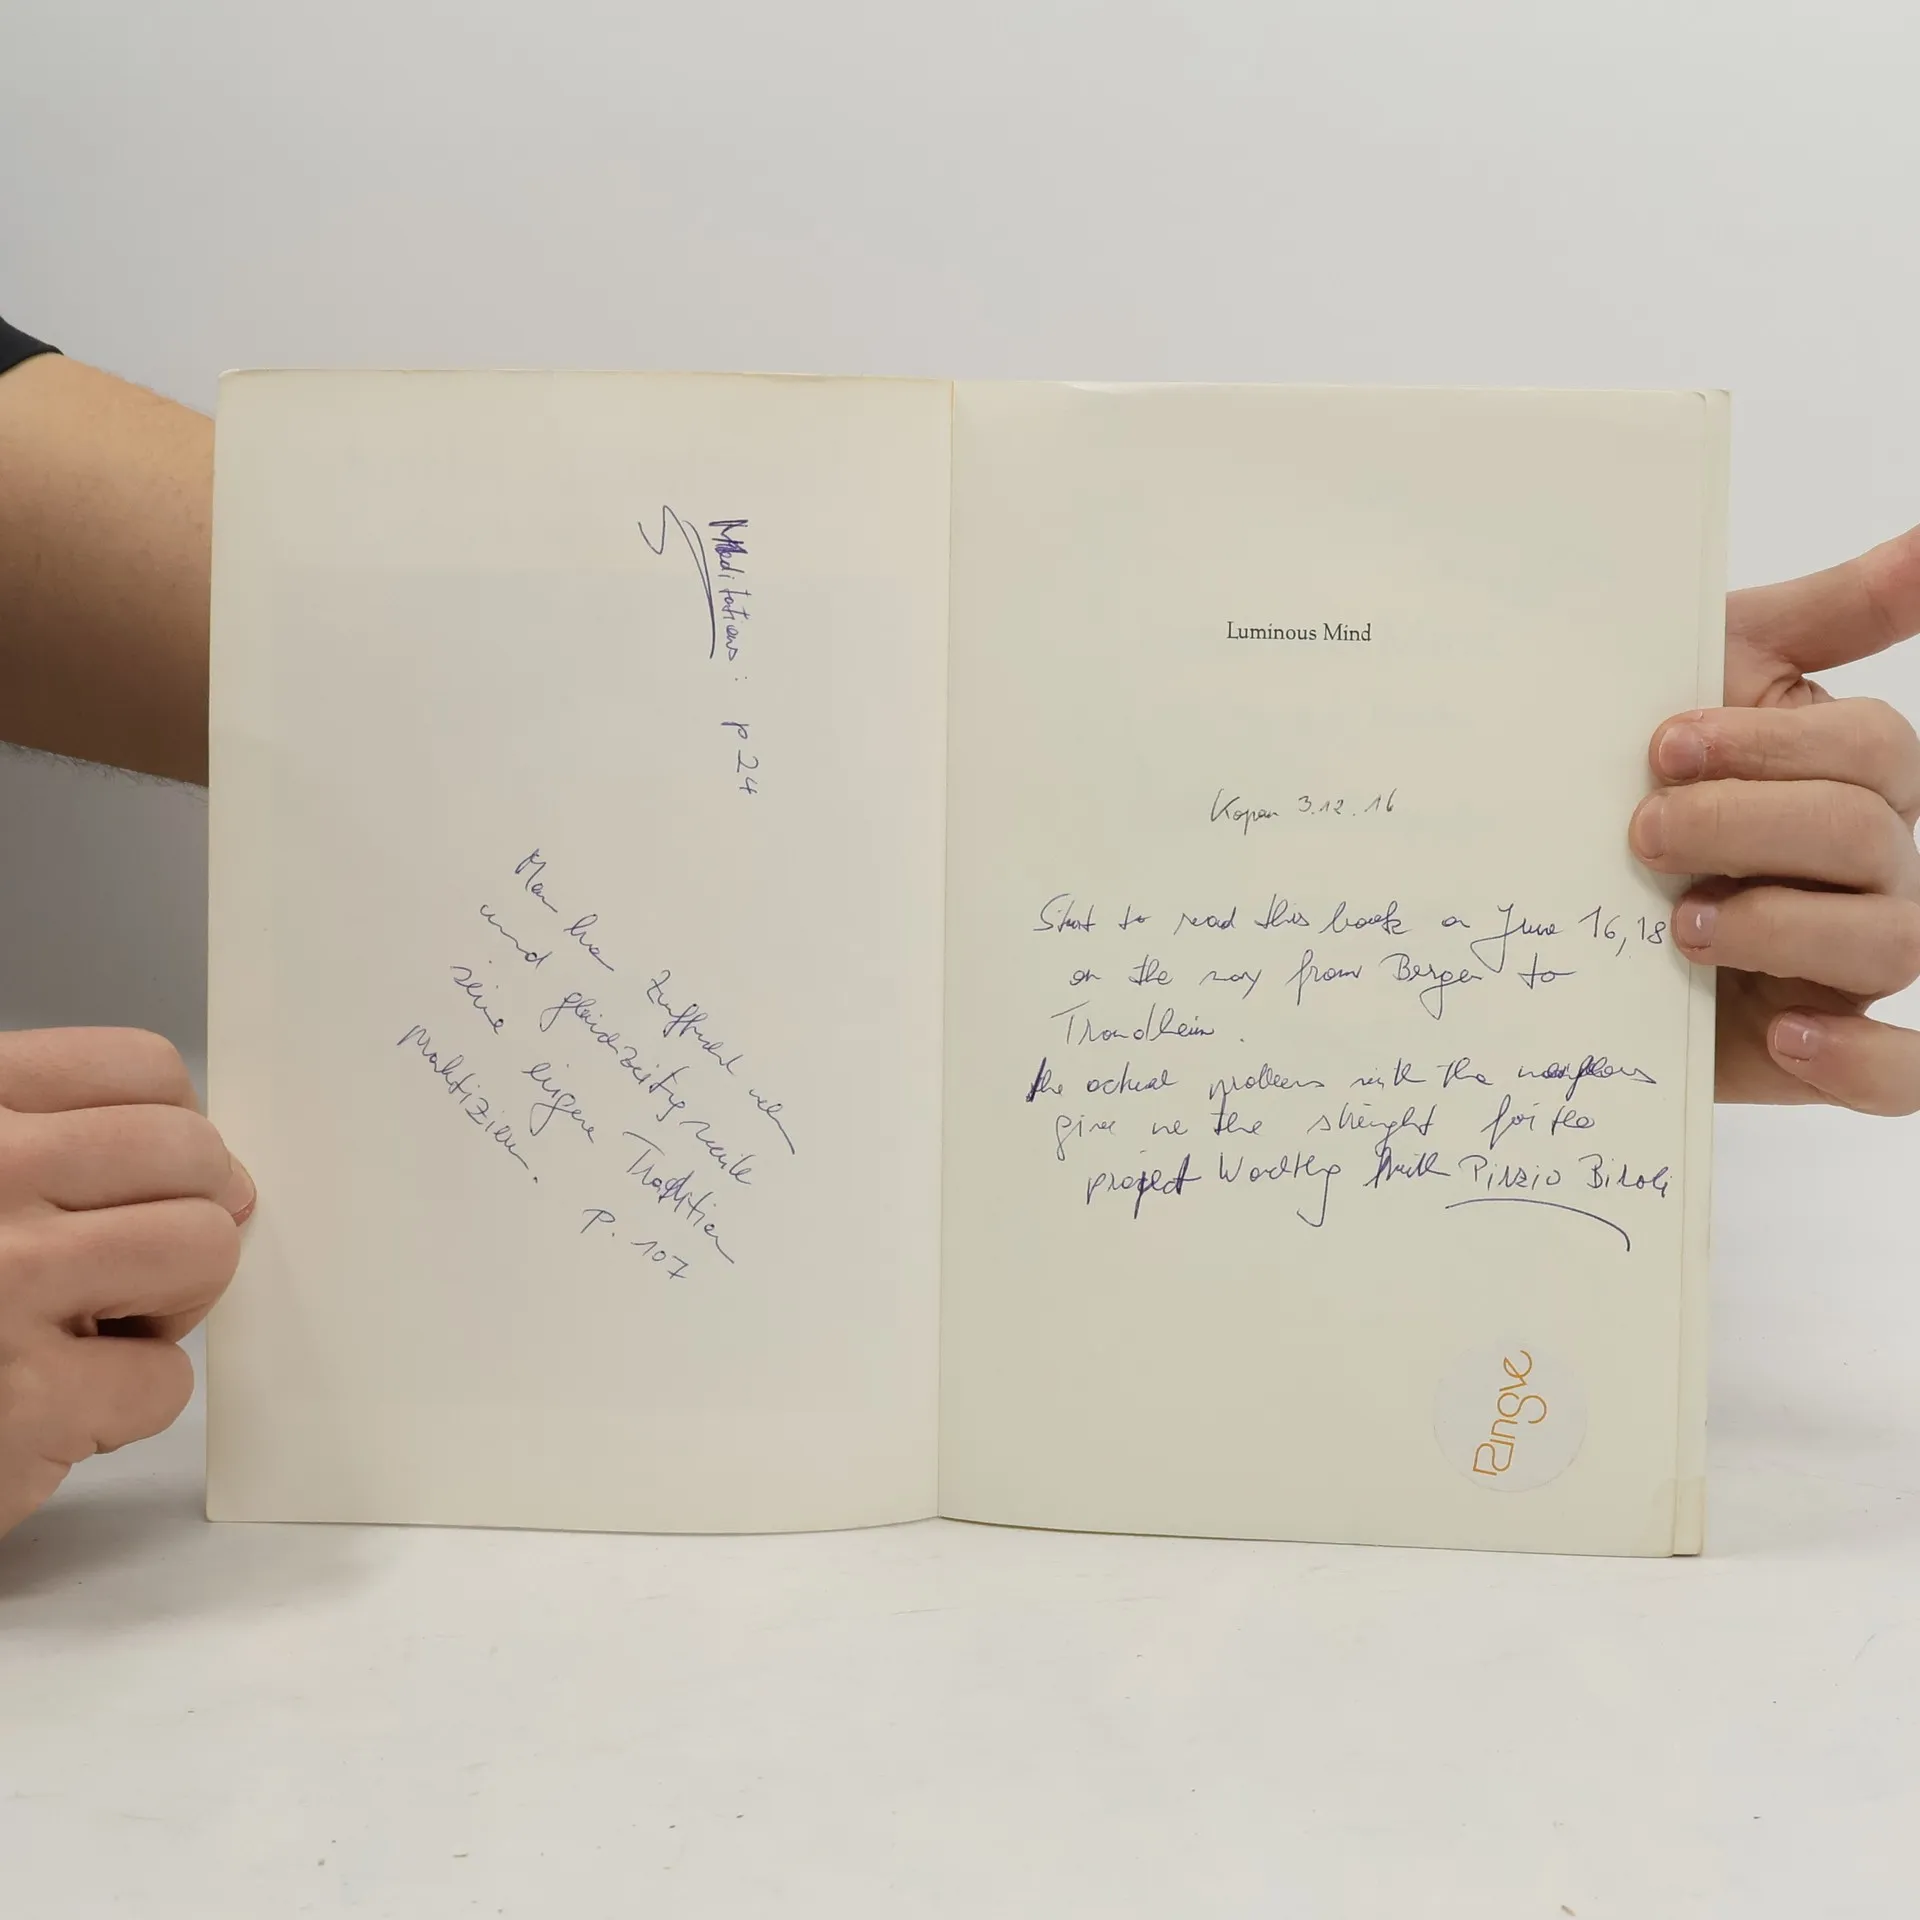 Meditations: p 24
Man kan Zuflucht nehmen
und gleichzeitig
seine eigene Tradition
praktizieren.
P. 107
Luminous Mind
Kopan 3.12.16
Start to read this book on June 16, 18
on the way from Bergen to
Trondheim.
the actual problems with the
give me the strenght for the
project Worthy with Pirzio Biroli
Ringve